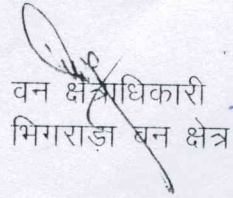 वन क्षेत्राधिकारी
भिगराड़ा वन क्षेत्र